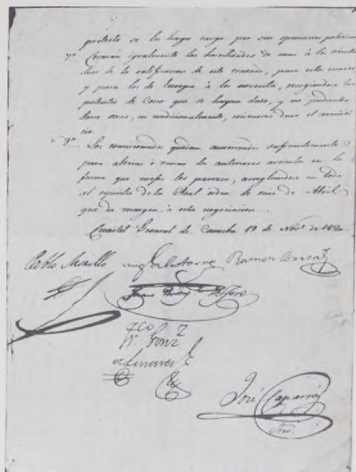 pretesto se les haga cargo por sus opiniones politicas
7º Cesarán igualmente las hostilidades de mar à la
dias de la ratificacion de este tratado, para estos mares
y para los de Europa à los noventa,
patentes de Corso que se hayan dado, y no pudiendo
darse otras, ni condicionalmente, mientras dure el armisti
cio.
8º Los comisionados quedan autorizados suficientemente
para alterar ò variar los anteriores articulos en la
forma que mejor les parezca, arreglandose en todo
al espiritu de la Real orden de once de Abril
que da margen à esta negociacion.
Cuartel General de Carache 19 de Nov.e de 1820
Pablo Morillo Ramon Correa
Juan Rodrig.z
Fco
Gonz.z
de Linares
José Caparrós
Srio.